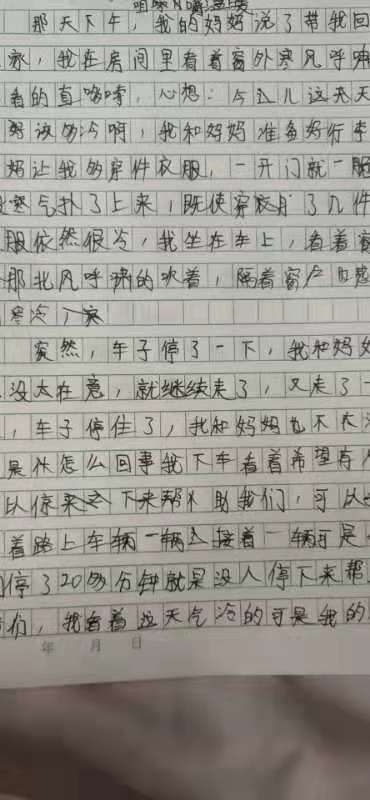 那天下午，我的妈妈说了带我回
家，我在房间里看着窗外寒风呼啸
看的直哆嗦，心想：今儿这天
好该多冷啊，我和妈妈准备好行李
妈让我多穿件衣服，一开门就一股
寒气扑了上来，既使穿了几件
服依然很冷，我坐在车上，看着窗
那北风呼啸的吹着，隔着窗户
寒冷
突然，车子停了一下，我和妈妈
没太在意，就继续走了，又走了一
，车子停住了，我和妈妈也不太
是怎么回事我下车看着希望有
以停下来帮助我们，可以
着路上车辆一辆接着一辆可是
停了20多分钟就是没人停下来帮
们，我看着这天气冷的可是我的
年 月 日